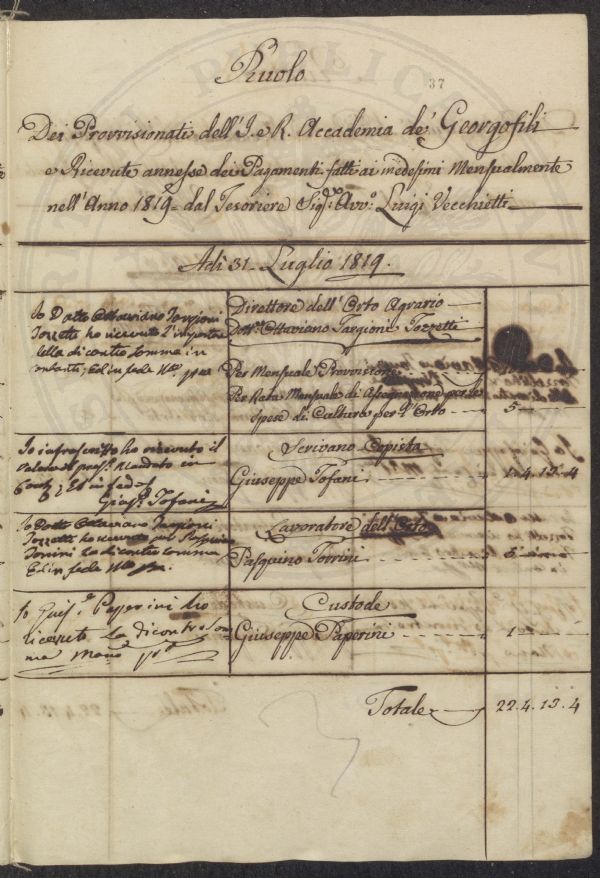 Ruolo
37
Dei Provvisionati dell'I. e R. Accademia de' Georgofili
e Ricevute annesse dei Pagamenti fatti ai medesimi Mensualmente
nell'Anno 1819 dal Tesoriere Sig.re Avv.o Luigi Vecchietti
Adì 31. Luglio 1819.
Io Dott. Ottaviano Targioni
Tozzetti ho ricevuto l'importare
della di contro somma in
contanti, Ed in fede M.o pp.a
Direttore dell'Orto Agrario
Dott.re Ottaviano Targioni Tozzetti
Per Mensuale Provvisione
Per Rata Mensuale di Assegnazione per le
spese di Cultura per l'Orto
5
Io infrascritto ho ricevuto il
valore del pres. Mandato in
Cont.i, Ed in fede
Gius.e Tofani
Scrivano Copista
Giuseppe Tofani
1. 4. 13. 4
Io Dott. Ottaviano Targioni
Tozzetti ho ricevuto per Pasquino
Torrini la di contro somma
Ed in fede M.o pp.a
Lavoratore dell'Orto
Pasquino Torrini
5
Io Gius.e Paperini ho
ricevuto la di contro som=
ma Mano pp.a
Custode
Giuseppe Paperini
1
Totale
22. 4. 13. 4